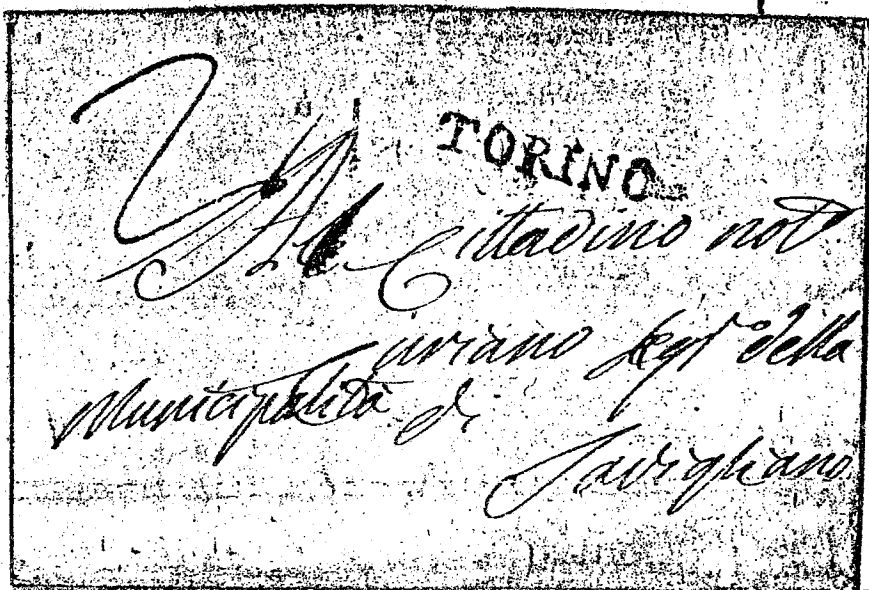 2
TORINO
Al Cittadino not.º
segrº della
Municipalità di
Savigliano